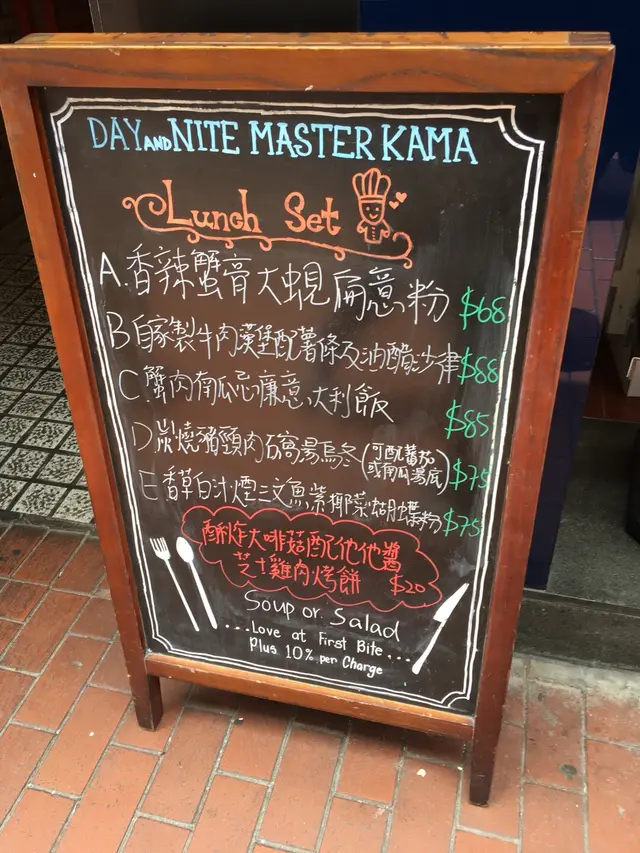 DAY AND NITE MASTER KAMA
Lunch Set
A. 香辣蟹膏大蜆扁意粉 $68
B 自家製牛肉漢堡配薯條及油醋沙律 $88
C. 蟹肉南瓜忌廉意大利飯 $85
D 炭燒豬頸肉石窩湯烏冬 (可配蕃茄或南瓜湯底) $75
E 香草白汁煙三文魚紫椰菜蝴蝶粉 $75
酥炸大啡菇配他他醬
芝士雞肉烤餅 $20
Soup or Salad
...Love at First Bite...
Plus 10% per Charge